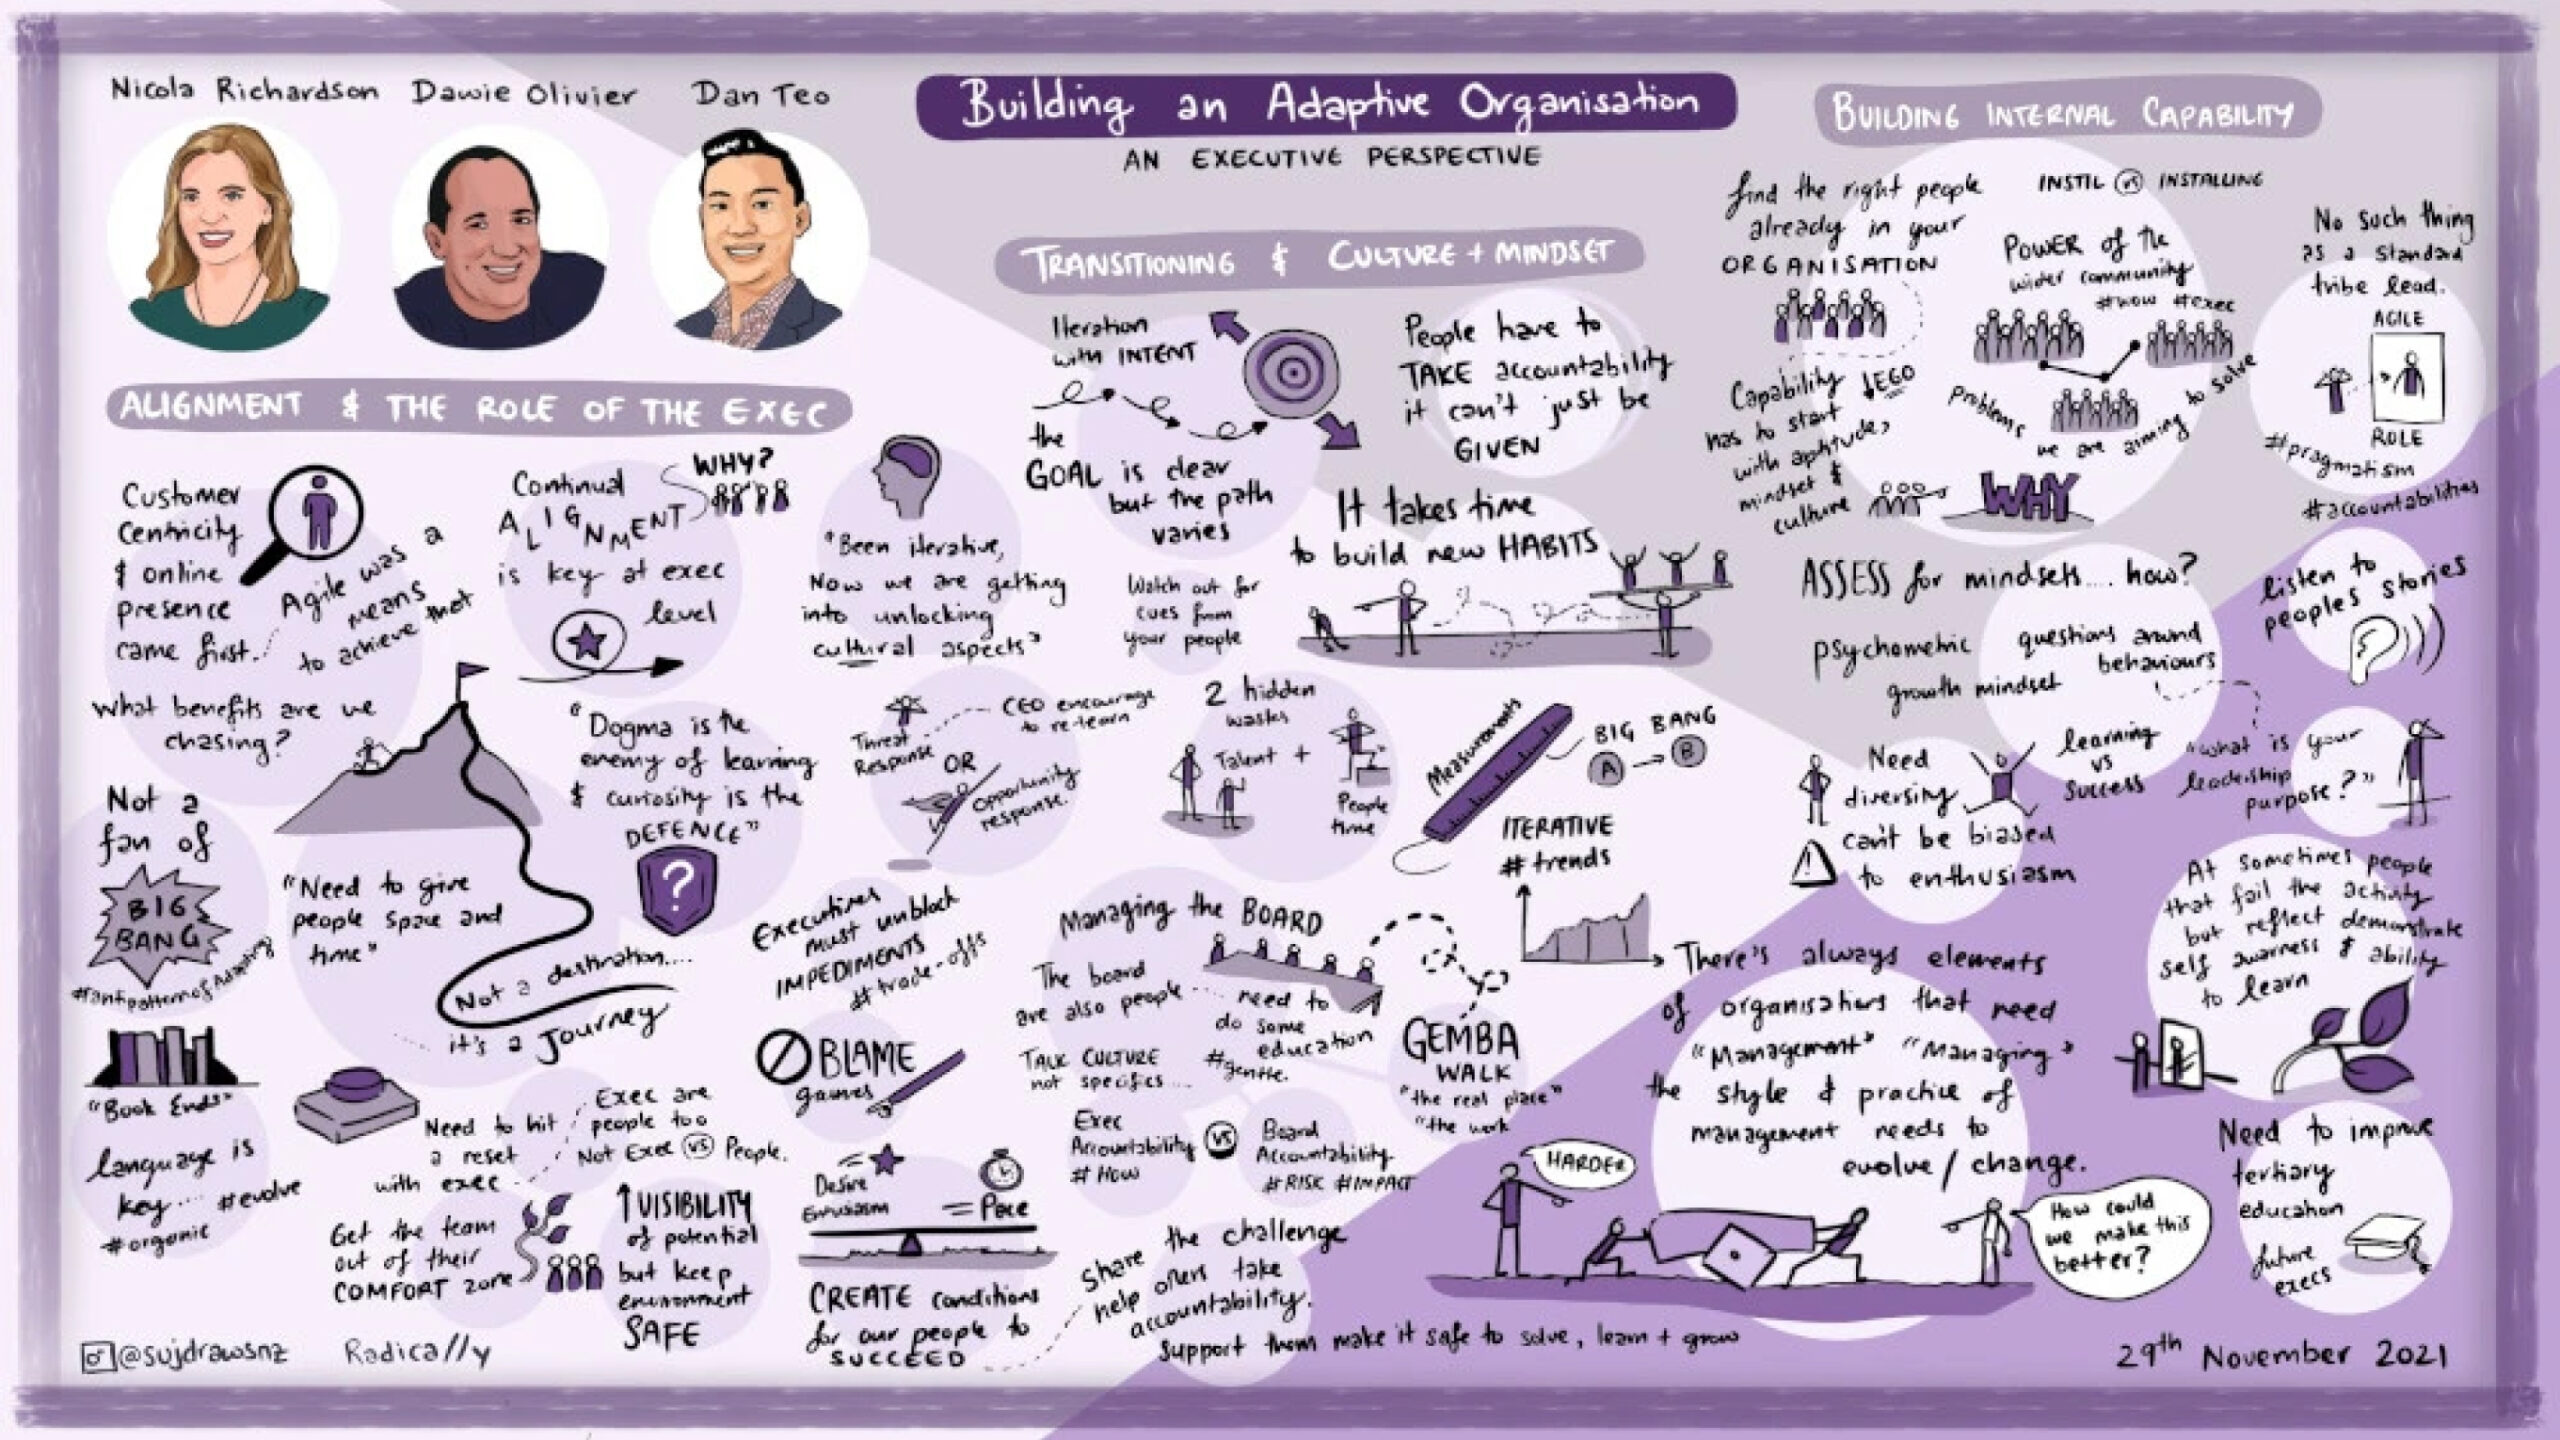 Nicola Richardson
Dawie Olivier
Dan Teo
Building an Adaptive Organisation
AN EXECUTIVE PERSPECTIVE
ALIGNMENT & THE ROLE OF THE EXEC
Customer
Centricity
& online
presence
came first.
Agile was a
means
to achieve that
Continual
ALIGNMENT
is key at exec
level
WHY?
"Been iterative,
Now we are getting
into unlocking
cultural aspects"
What benefits are we
chasing?
"Dogma is the
enemy of learning
& curiosity is the
DEFENCE"
?
Not a
fan of
BIG
BANG
"Need to give
people space and
time"
Not a destination....
it's a Journey
"Book Ends"
language is
key... #evolve
#organic
Need to hit
a reset
with exec
Exec are
people too
Not Exec vs People.
Get the team
out of their
COMFORT zone
↑VISIBILITY
of potential
but keep
environment
SAFE
Executives
must unblock
IMPEDIMENTS
# trade-offs
BLAME
games
Desire
= Pace
CREATE conditions
for our people to
SUCCEED
share the challenge
help others take
accountability.
support them make it safe to solve, learn + grow
TRANSITIONING & CULTURE + MINDSET
Iteration
with INTENT
the
GOAL is clear
but the path
varies
People have to
TAKE accountability
it can't just be
GIVEN
It takes time
to build new HABITS
Watch out for
cues from
your people
Threat
Response
OR
Opportunity
response.
CEO encourage
to re-learn
2 hidden
wastes
Talent +
People
time
Measurements
BIG BANG
A → B
ITERATIVE
# trends
Managing the BOARD
The board
are also people
need to
do some
education
#gentle.
TALK CULTURE
not specifics....
Exec
Accountability
# HOW
vs
Board
Accountability
#RISK #IMPACT
GEMBA
WALK
"the real place"
"the work
BUILDING INTERNAL CAPABILITY
find the right people
already in your
ORGANISATION
INSTIL vs INSTALLING
POWER of the
wider community
#now #exec
problems we are aiming to solve
WHY
Capability ↓EGO
has to start
with aptitude,
mindset &
culture
No such thing
as a standard
tribe lead.
AGILE
ROLE
#pragmatism
#accountabilities
ASSESS for mindsets.... how?
psychometric
growth mindset
questions around
behaviours
listen to
peoples stories
Need
diversity
learning
vs
success
"what is your
leadership
purpose?"
can't be biased
to enthusiasm
At sometimes people
that fail the activity
but reflect demonstrate
self awarness & ability
to learn
There's always elements
of organisations that need
"Management" "Managing"
the style & practice of
management needs to
evolve / change.
HARDER
How could
we make this
better?
Need to improve
tertiary
education
future
execs
@sujdrawsnz
Radically
29th November 2021